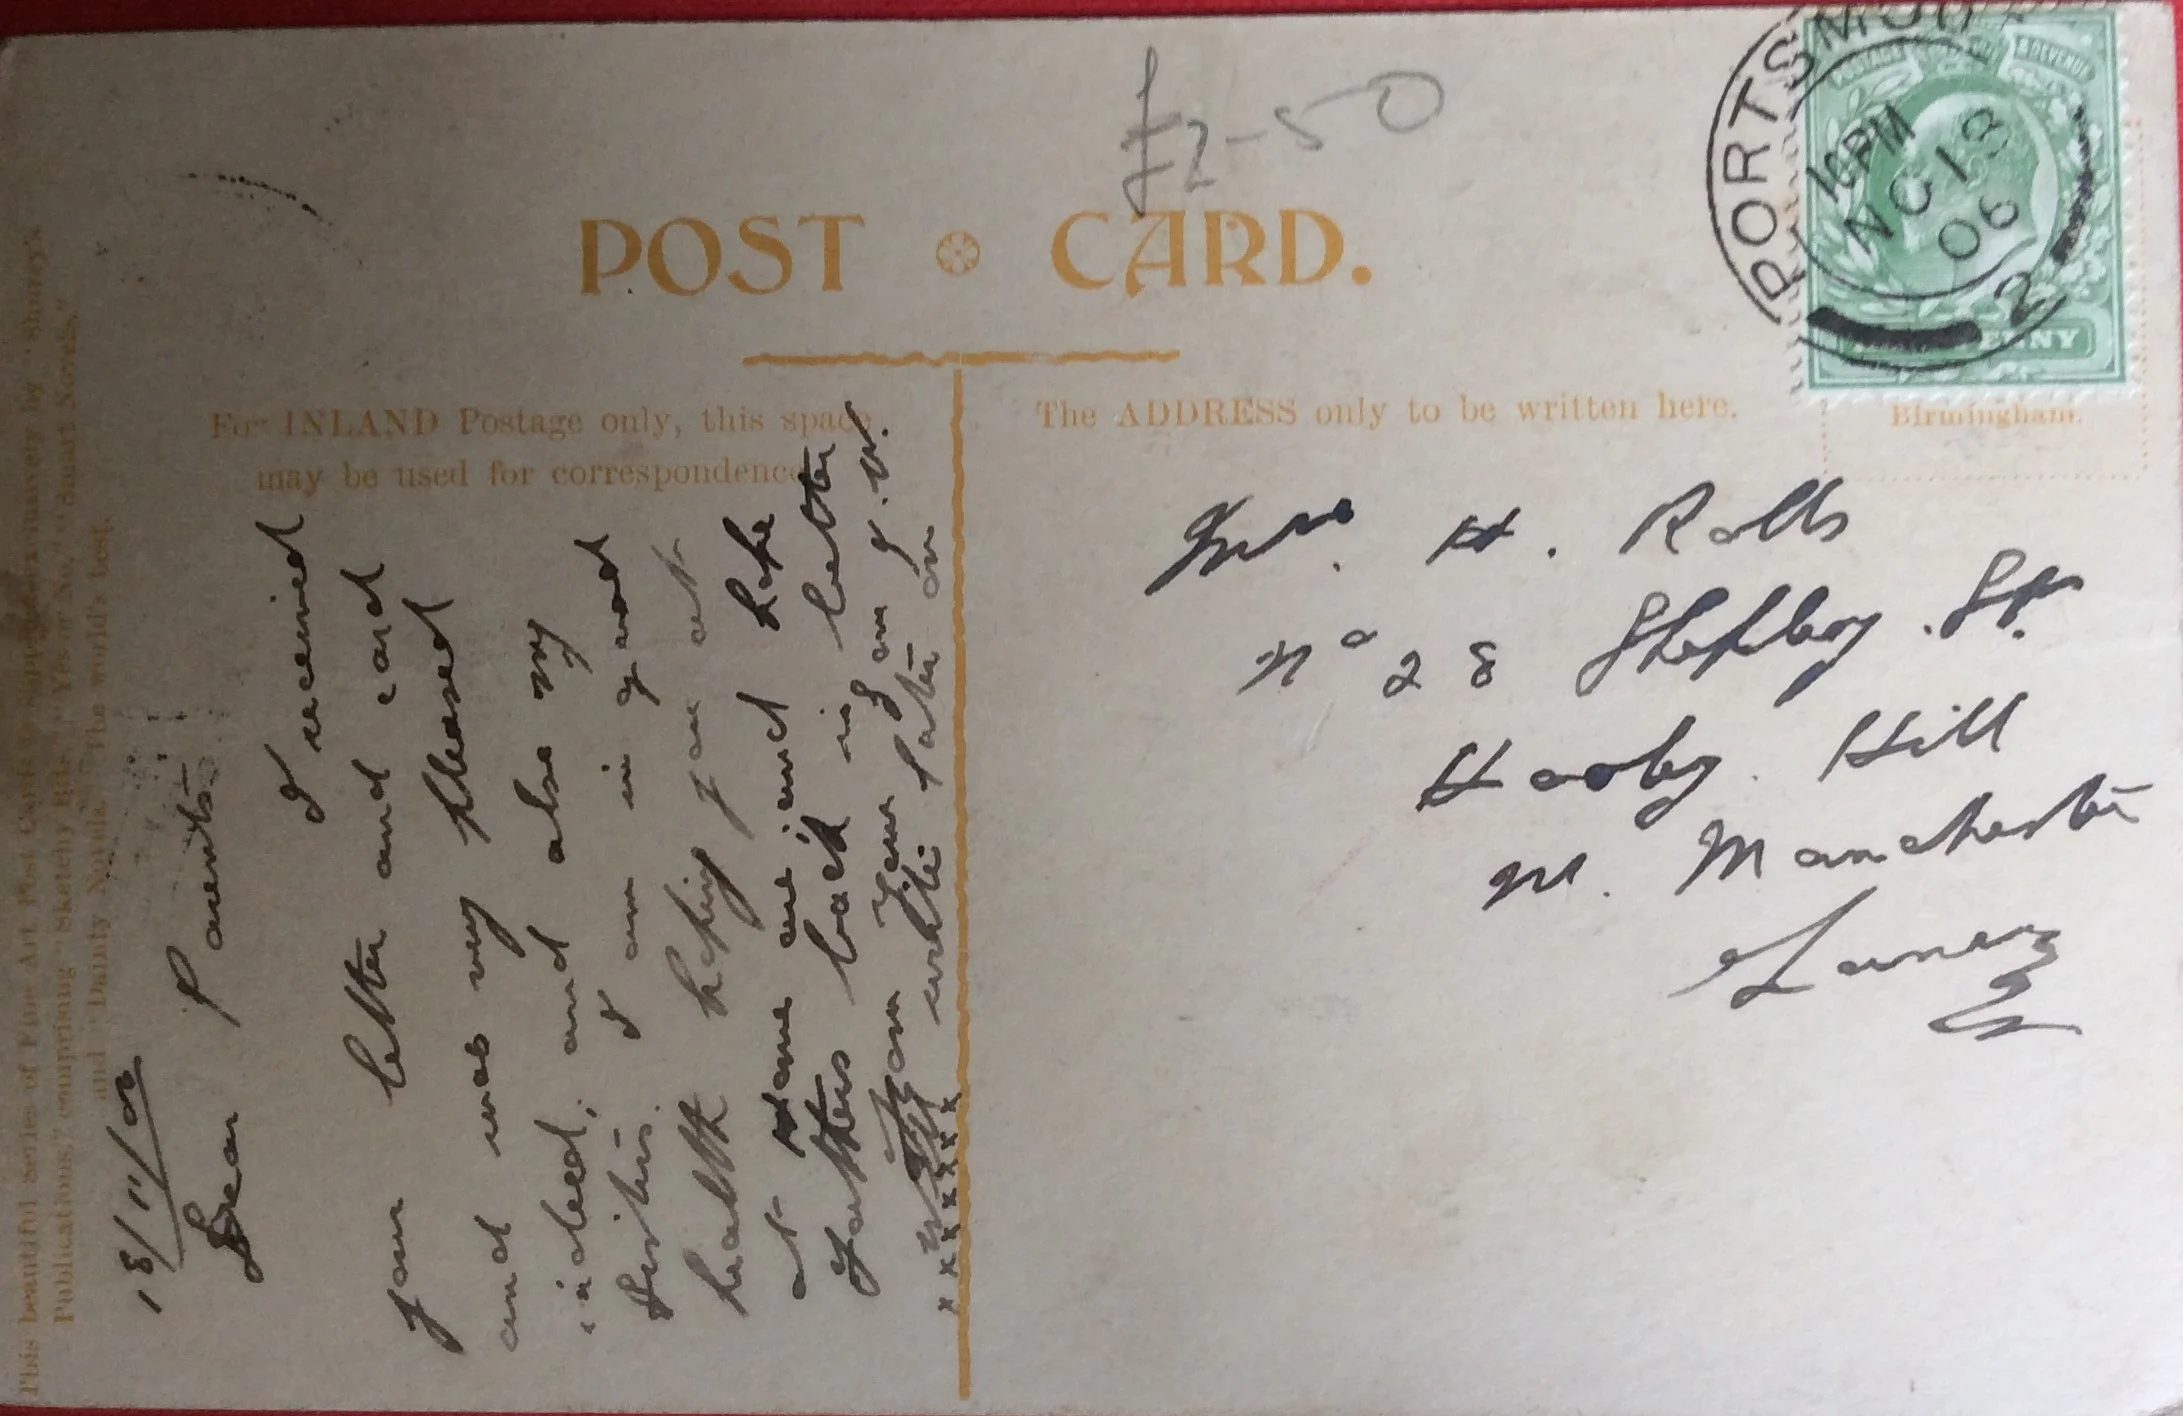 £2-50
POST CARD.
PORTSMOUTH
10 PM
NO 18
06
2
POSTAGE & REVENUE
PENNY
For INLAND Postage only, this space
may be used for correspondence
The ADDRESS only to be written here.
Birmingham.
This beautiful series of Fine Art Post Cards is supplied exclusively by "Shurey's
Publications," comprising "Smart Novels," "Yes or No,"
and "Dainty Novels." The world's best.
18/11/06
Dear Parents.
I received
your letter and card
and was very pleased
indeed; and also my
Sisters. I am in good
health hoping you are
at Home and hope
Fathers back is better
from your Son J. W.
will write later on
x x x x x x x
Mrs. H. Rolls
No 28 Shepley St.
Hooley Hill
Nr. Manchester
Lancs